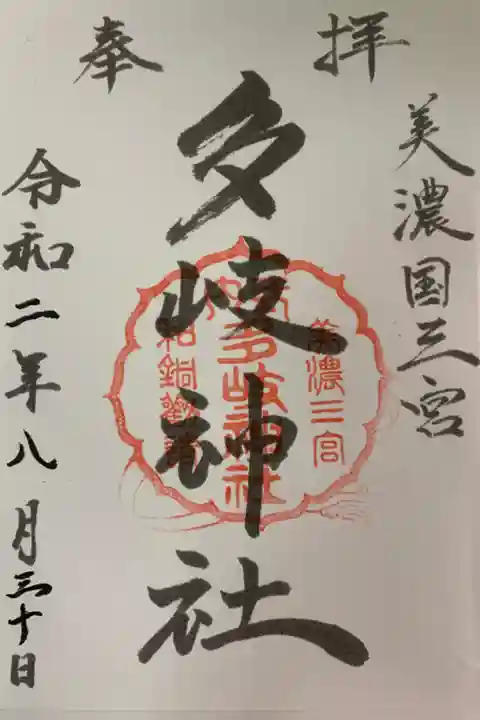 奉拝
美濃国三宮
多岐神社
美濃三宮
多岐神社
令和二年八月三十日